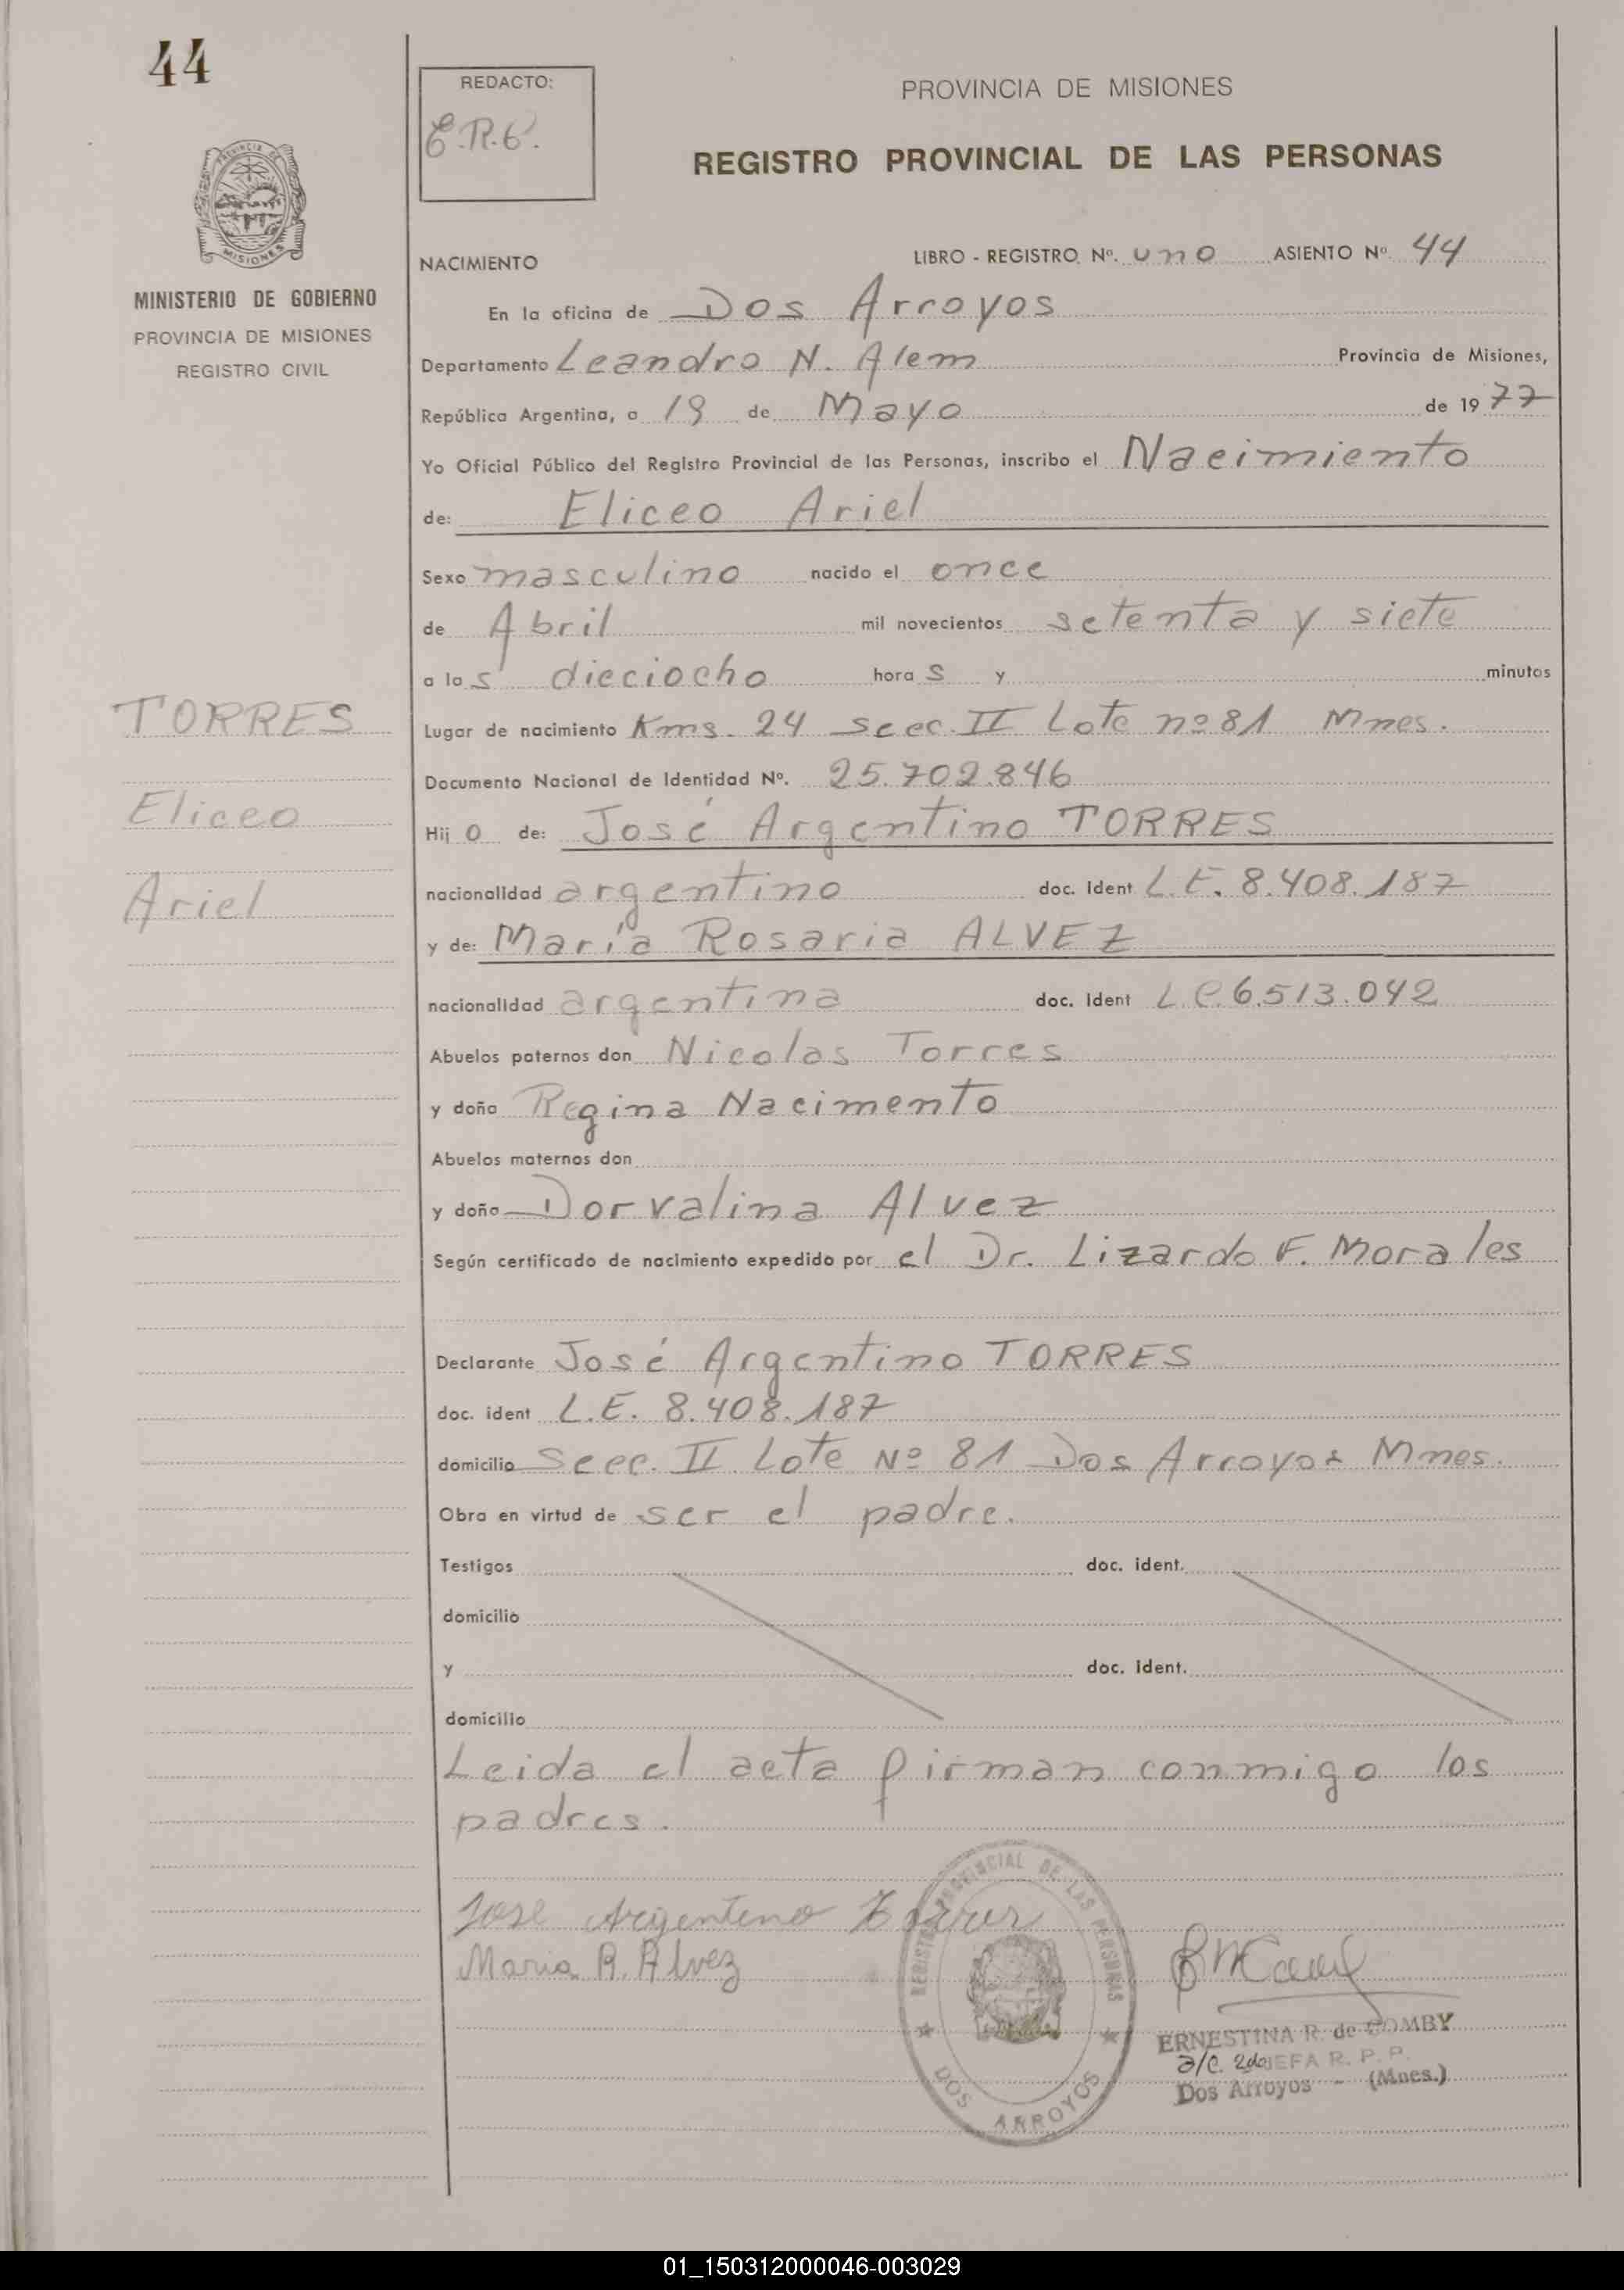 44
REDACTO:
E.R.C.
PROVINCIA DE MISIONES
REGISTRO PROVINCIAL DE LAS PERSONAS
PROVINCIA DE
MISIONES
MINISTERIO DE GOBIERNO
PROVINCIA DE MISIONES
REGISTRO CIVIL
NACIMIENTO LIBRO - REGISTRO Nº. uno ASIENTO Nº. 44
En la oficina de Dos Arroyos
Departamento Leandro N. Alem Provincia de Misiones,
República Argentina, a 19 de Mayo de 1977
Yo Oficial Público del Registro Provincial de las Personas, inscribo el Nacimiento
de: Eliceo Ariel
Sexo masculino nacido el once
de Abril mil novecientos setenta y siete
a las dieciocho horas y minutos
TORRES
Eliceo
Ariel
Lugar de nacimiento Kms. 24 secc. II Lote nº 81 Mnes.
Documento Nacional de Identidad Nº. 25.702.846
Hijo de: José Argentino TORRES
nacionalidad argentino doc. Ident L.E. 8.408.187
y de: María Rosaria ALVEZ
nacionalidad argentina doc. Ident L.C. 6.513.042
Abuelos paternos don Nicolas Torres
y doña Regina Nacimento
Abuelos maternos don
y doña Dorvalina Alvez
Según certificado de nacimiento expedido por el Dr. Lizardo F. Morales
Declarante José Argentino TORRES
doc. ident L.E. 8.408.187
domicilio Secc. II Lote Nº 81 Dos Arroyos Mnes.
Obra en virtud de ser el padre.
Testigos doc. ident.
domicilio
y doc. ident.
domicilio
Leida el acta firman conmigo los
padres.
Jose Argenteno Torres
Maria R. Alvez
REGISTRO PROVINCIAL DE LAS PERSONAS
DOS ARROYOS
ERNESTINA R. de COMBY
a/c. 2da JEFA R. P. P.
Dos Arroyos - (Mnes.)
01_150312000046-003029